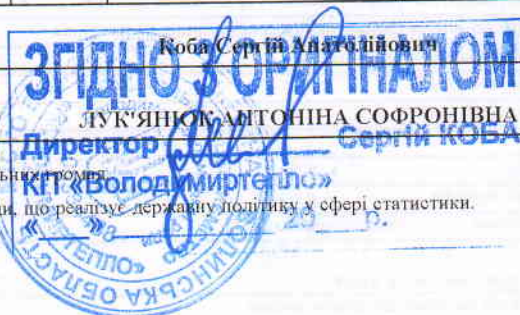 Коба Сергій Анатолійович
ЗГІДНО З ОРИГІНАЛОМ
ЛУК'ЯНЮК АНТОНІНА СОФРОНІВНА
Директор Сергій КОБА
КП «Володимиртепло»
що реалізує державну політику у сфері статистики.
« » 20 р.
ВОЛИНСЬКА ОБЛАСТЬ